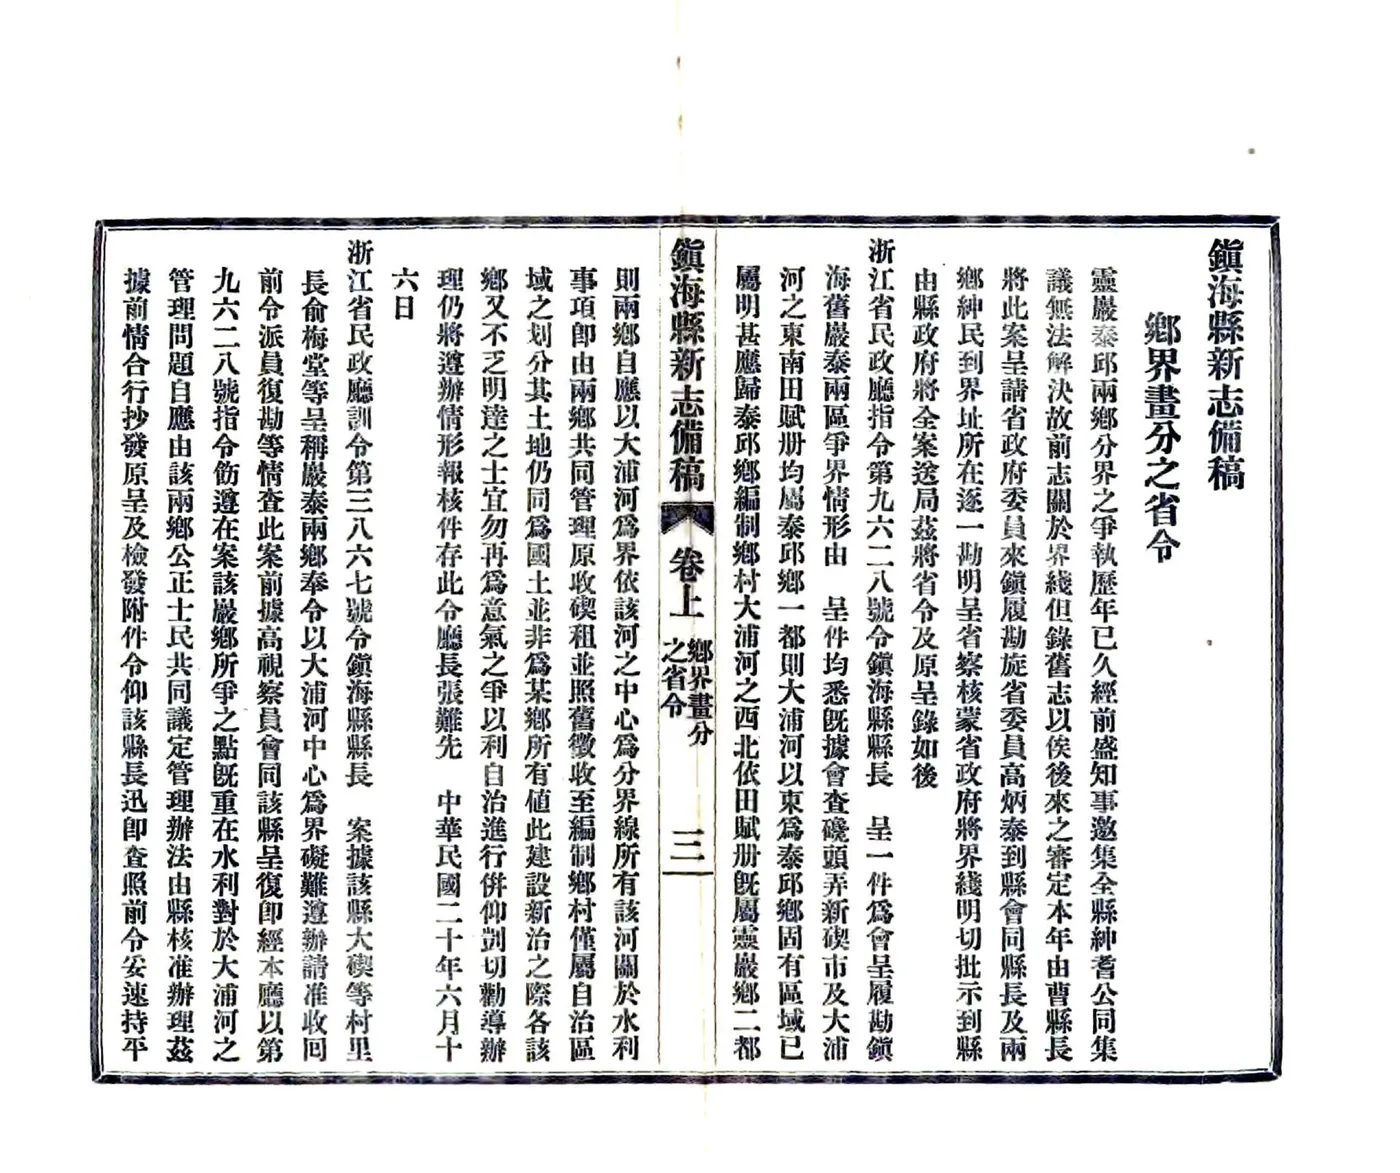 鎭海縣新志備稿
鄉界畫分之省令
靈巖泰邱兩鄉分界之爭執歷年已久經前盛知事邀集全縣紳耆公同集
議無法解決故前志關於界綫但錄舊志以俟後來之審定本年由曹縣長
將此案呈請省政府委員來鎭履勘旋省委員高炳泰到縣會同縣長及兩
鄉紳民到界址所在逐一勘明呈省察核蒙省政府將界綫明切批示到縣
由縣政府將全案送局茲將省令及原呈錄如後
浙江省民政廳指令第九六二八號令鎭海縣縣長　呈一件爲會呈履勘鎭
海舊巖泰兩區爭界情形由　呈件均悉既據會查磯頭弄新碶市及大浦
河之東南田賦册均屬泰邱鄉一都則大浦河以東爲泰邱鄉固有區域已
屬明甚應歸泰邱鄉編制鄉村大浦河之西北依田賦册既屬靈巖鄉二都
鎭海縣新志備稿　卷上　鄉界畫分之省令　三
則兩鄉自應以大浦河爲界依該河之中心爲分界線所有該河關於水利
事項卽由兩鄉共同管理原收碶租並照舊徵收至編制鄉村僅屬自治區
域之划分其土地仍同爲國土並非爲某鄉所有値此建設新治之際各該
鄉又不乏明達之士宜勿再爲意氣之爭以利自治進行併仰剴切勸導辦
理仍將遵辦情形報核件存此令廳長張難先　中華民國二十年六月十
六日
浙江省民政廳訓令第三八六七號令鎭海縣縣長　案據該縣大碶等村里
長俞梅堂等呈稱嚴泰兩鄉奉令以大浦河中心爲界礙難遵辦請准收回
前令派員復勘等情查此案前據高視察員會同該縣呈復卽經本廳以第
九六二八號指令飭遵在案該巖鄉所爭之點旣重在水利對於大浦河之
管理問題自應由該兩鄉公正士民共同議定管理辦法由縣核准辦理茲
據前情合行抄發原呈及檢發附件令仰該縣長迅卽查照前令妥速持平